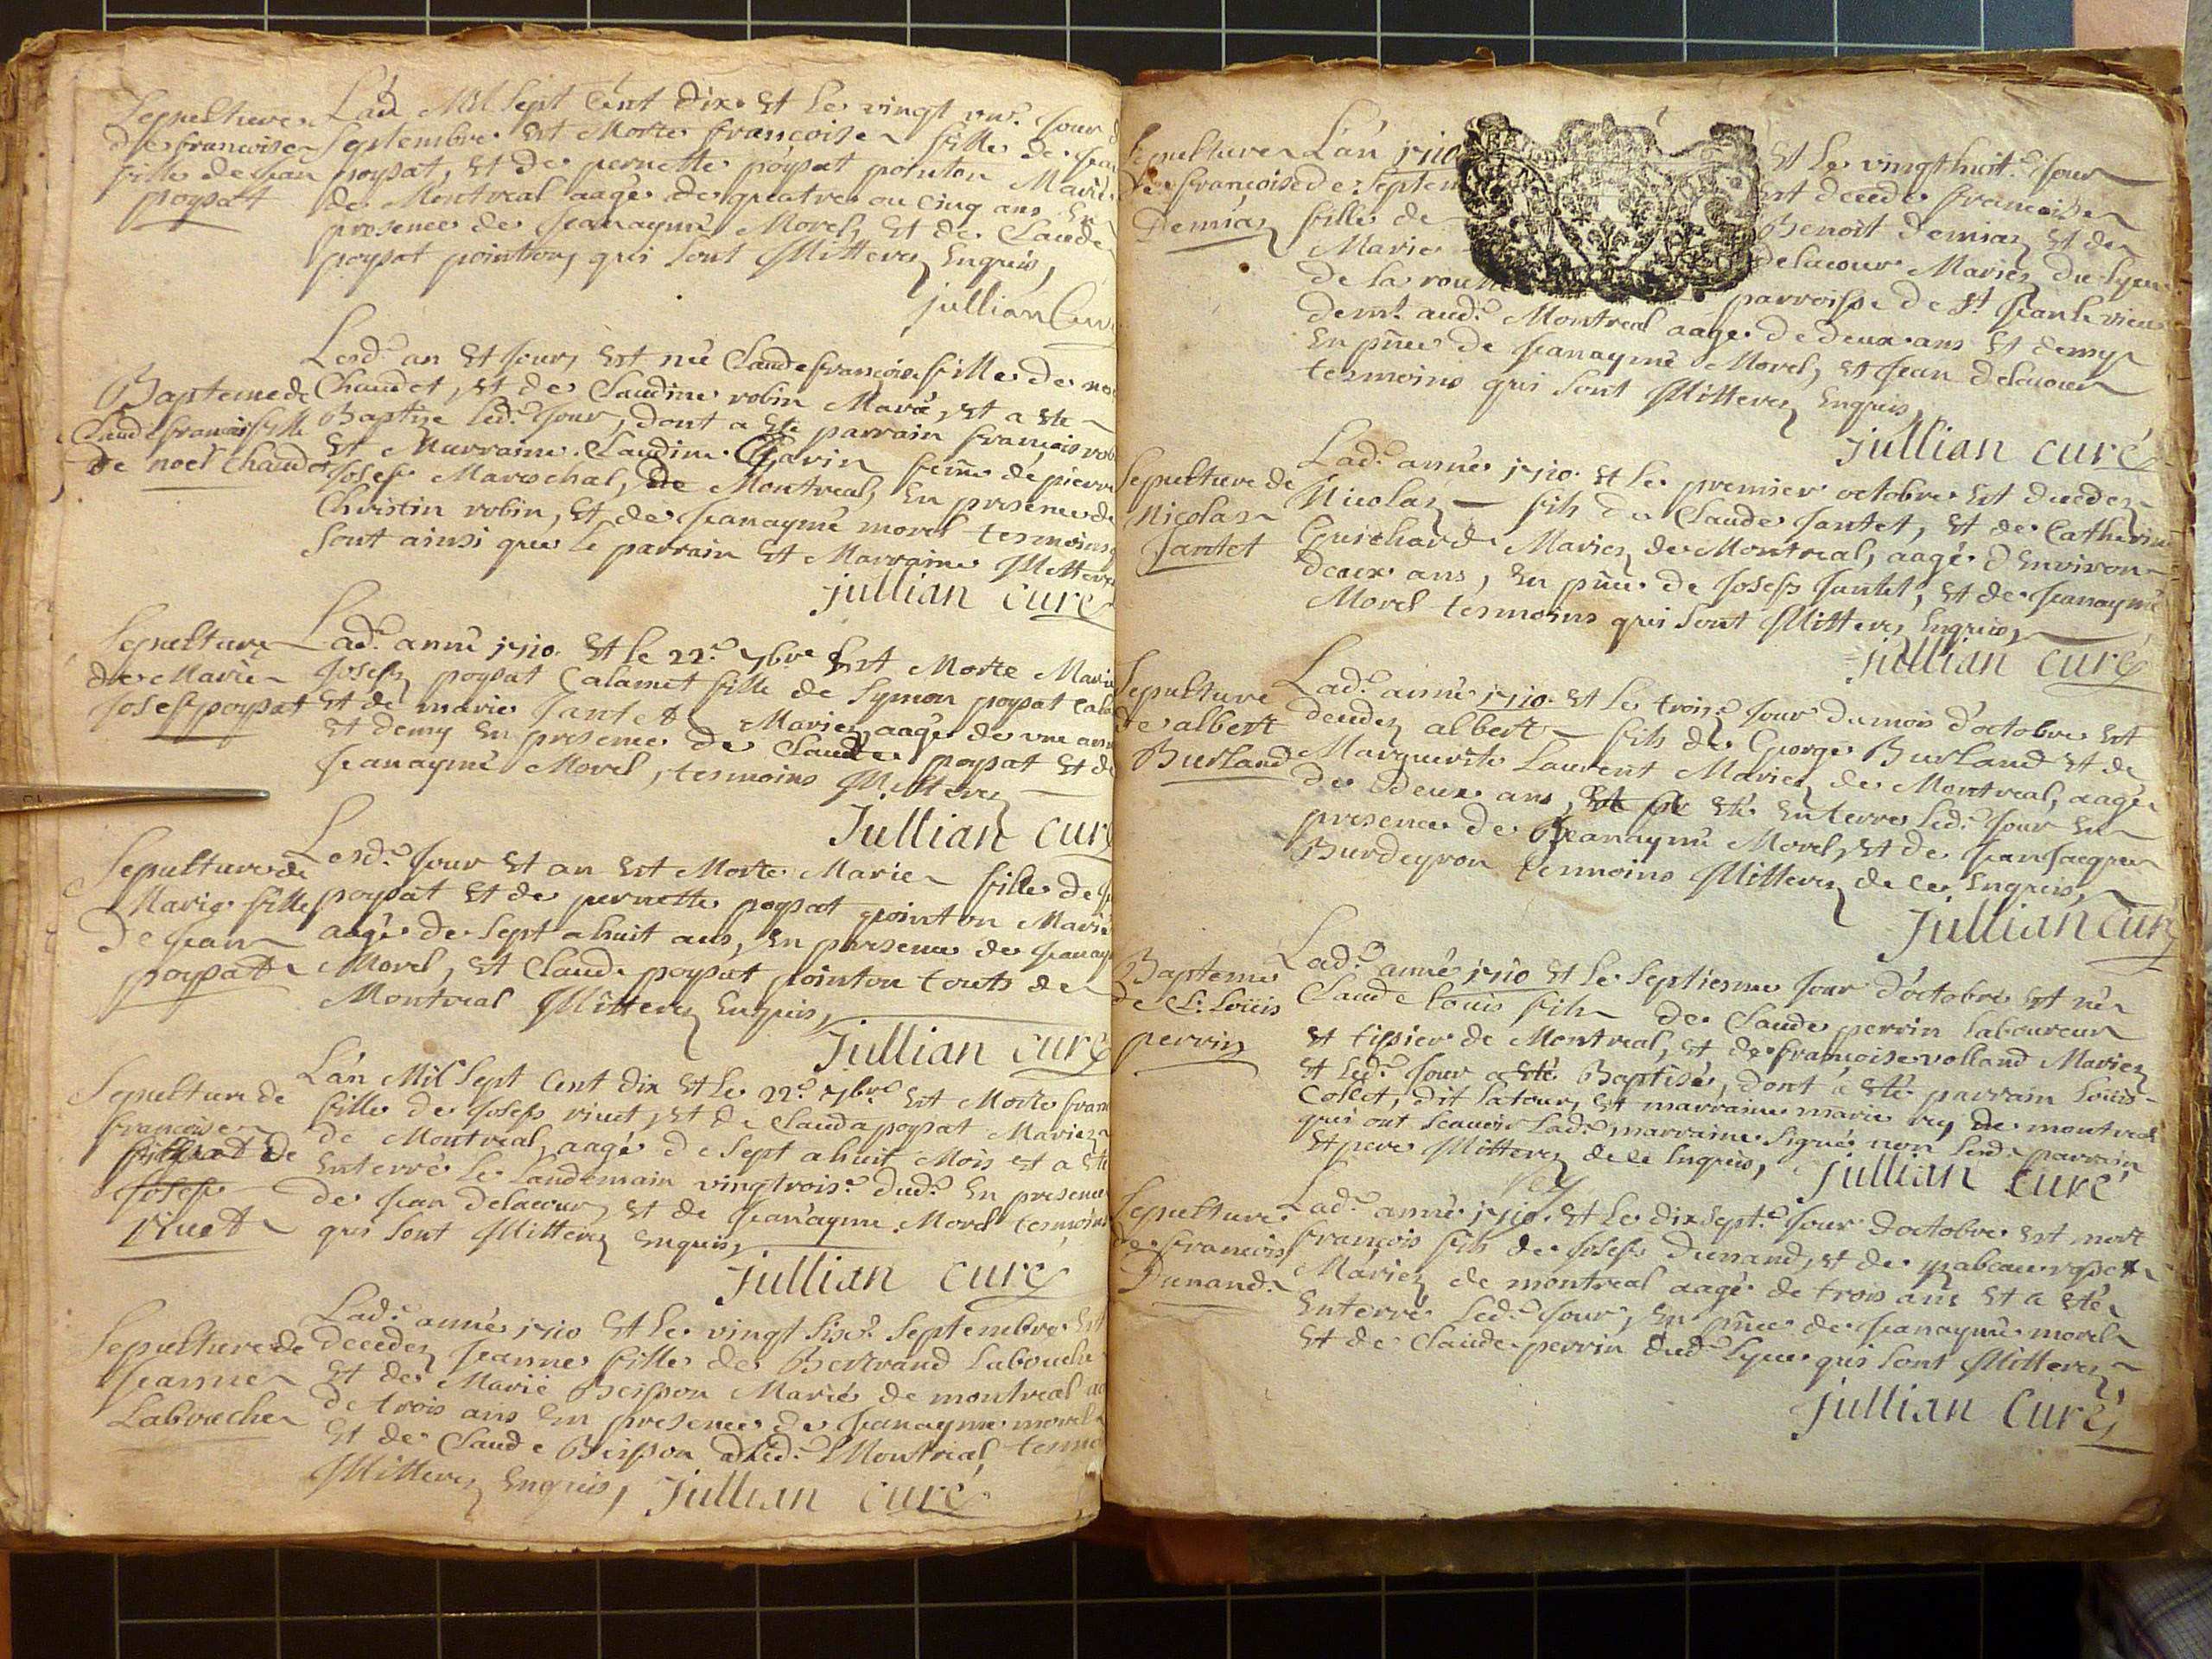 Sepulture
de francoise
fille de Jean
poysat
L'an Mil Sept Cent dix et le vingt un.e Jour
Septembre est Morte francoise fille de Jean
poysat, et de pernette poysat pointon Mariés
de Montreal aagée de quatre ou cinq ans En
presence de Jeanaymé Morel, et de Claude
poysat pointon, qui sont Illitterez Enquis,
jullian Curé
Bapteme de
Claude francoise fille
de noel Chaudet
Lesd.s an et Jour, est née Claude francoise fille de noel
Chaudet, et de Claudine robin Mariés, et a ete
Baptise led.t Jour, dont a ete parrain francois
et Marraine Claudine femme de pierre
Josef Mareschal, de Montreal, En presence de
Christin robin, et de Jeanaymé morel tesmoins
sont ainsi que le parrain et Marraine Illitterez
jullian curé
Sepulture
de Marie
Josef poysat
Lad.e anné 1710. et le 22.e 7bre Est Morte Marie
Josefz poysat Calamet fille de Symon poysat
et de marie Jantet Mariez, aagé de une
et demy En presence de Claude poysat et de
Jeanaymé Morel, tesmoins Illitterez
Jullian curé
Sepulture de
Marie fille
de Jean
poysat
Lesd.s Jour et an est Morte Marie fille de
poysat et de pernette poysat pointon Mariés
aagé de Sept a huit ans, En presence de
Morel, et Claude poysat pointon touts de
Montreal Illitterez Enquis,
Jullian curé
Sepulture de
francoise
de
Josef
Vuet
L'an Mil Sept Cent dix et le 22.e 7bre est Morte
fille de Josefs vuet, et de Clauda poysat Mariez
de Montreal, aagé de Sept a huit Mois et a ete
Enterré le Landemain vingtrois.e dud.t En presence
de Jean delacour, et de Jean aymé Morel tesmoins
qui sont Illitterez Enquis,
jullian curé
Sepulture de
Jeanne
Labouche
Lad.e année 1710 et le vingt Six.e Septembre Est
decedez Jeanne fille de Bertrand Labouche
et de Marie Beisson Mariés de montreal
de trois ans En presence de Jeanayme morel
et de Claude Beisson dud.t Montreal,
Illitterez Enquis, Jullian curé
Sepulture
de francoise
Demiaz
L'an 1710 et le vingthuit.e Jour
de Septem est decede francoise
fille de Benoit demiaz et de
Marie delacour Mariez du lyeu
de la parroisse de S.t Jean le vieux
dem.t aud.t Montreal aage de deux ans et demy
En pnce de Jeanaymé Morel, et Jean delacour
tesmoins qui sont Illitterez Enquis,
jullian curé
Sepulture de
Nicolas
Jantet
Lad.e année 1710. et le premier octobre est decedez
Nicolas fils de Claude Jantet, et de Catherine
Guichard Mariez de Montreal, aagé d'Environ
deux ans, En pnce de Josefs Jantet, et de Jeanaymé
Morel tesmoins qui sont Illitterez Enquis,
jullian curé
Sepulture
de albert
Burland
Lad.e anné 1710. et le trois.e Jour du mois d'octobre est
decedez albert fils de George Burland et de
Marguerite Laurent Mariez de Montreal, aagé
de deux ans, eté Enterre led.t Jour En
presence de Jeanaymé Morel, et de Jean Jacques
Burdeyron tesmoins Illitterez de ce Enquis,
Jullian curé
Bapteme
de C. Loüis
perrin
Lad.e anné 1710 et le Septiesme Jour d'octobre est né
Claude Louis fils de Claude perrin laboureur
et tissier de Montreal, et de francoise volland Mariez
et led.t Jour a eté Baptisé, dont a eté parrain Loüis
Collet, dit latour, et marraine marie rey de montreal
qui ont Scauoir Lad.e marraine Signé non led.t parrain
et pere Illitterez de ce Enquis, Jullian Curé
rey
Sepulture
de francois
Dunand
Lad.e anné 1710. et le dixsept.e Jour doctobre est mort
francois fils de Josefs Dunand, et de
Mariez de montreal aagé de trois ans et a eté
Enterré led.t Jour, En pnce de Jeanaymé morel
et de Claude perrin dud.t lyeu qui sont Illitterez
jullian Curé